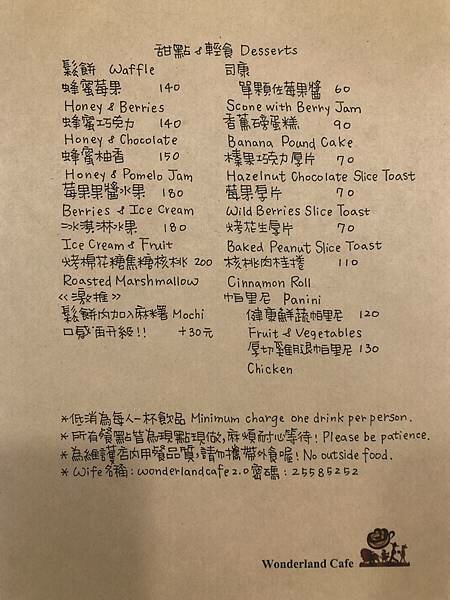 甜點 & 輕食 Desserts
鬆餅 Waffle
蜂蜜莓果 140
Honey & Berries
蜂蜜巧克力 140
Honey & Chocolate
蜂蜜柚香 150
Honey & Pomelo Jam
莓果果醬冰果 180
Berries & Ice Cream
冰淇淋水果 180
Ice Cream & Fruit
烤棉花糖焦糖核桃 200
Roasted Marshmallow
<<激推>>
鬆餅內加入麻糬 Mochi
口感再升級!! +30元
司康
單顆佐莓果醬 60
Scone with Berry Jam
香蕉磅蛋糕 90
Banana Pound Cake
榛果巧克力厚片 70
Hazelnut Chocolate Slice Toast
莓果厚片 70
Wild Berries Slice Toast
烤花生厚片 70
Baked Peanut Slice Toast
核桃肉桂捲 110
Cinnamon Roll
帕里尼 Panini
健康鮮蔬帕里尼 120
Fruit & Vegetables
厚切雞腿帕里尼 130
Chicken
*低消為每人一杯飲品 Minimum charge one drink per person.
*所有餐點皆為現點現做,麻煩耐心等待! Please be patience.
*為維護店內用餐品質,請勿攜帶外食喔! No outside food.
*Wife名稱:wonderlandcafe2.0 密碼:25585252
Wonderland Cafe